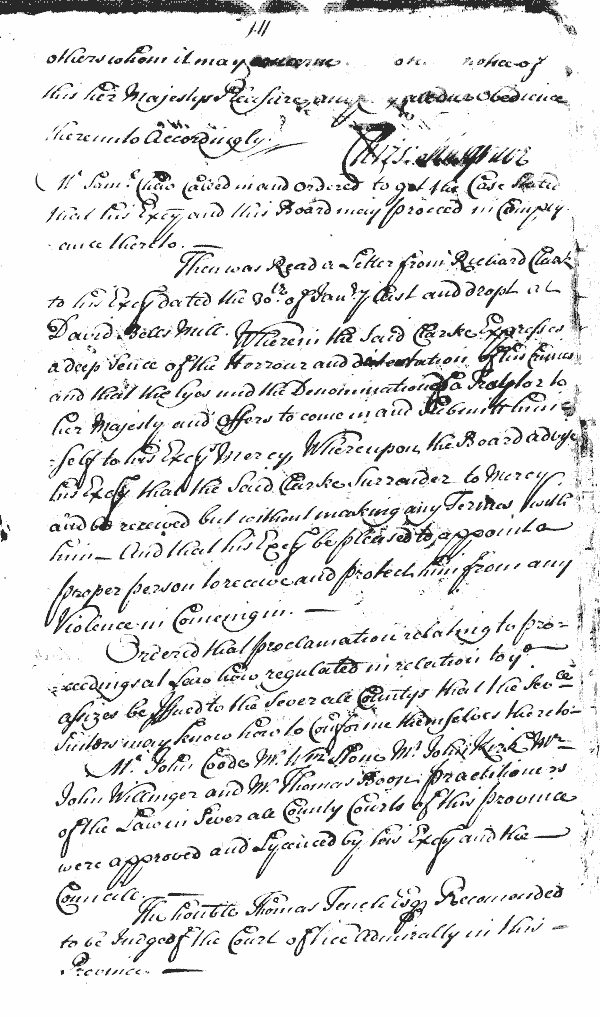 14
others whom it may concerne on notice of
this her Majestys Pleasure may all due Obedience
thereunto Accordingly.
Mr. Saml. Chew called in and ordered to get the Case Stated
that his Excy and this Board may proceed in Comply
ance thereto. —
Then was Read a Letter from Richard Clark
to his Excy dated the of Janry last and dropt at
David Bells Mill. Wherein the Said Clarke Expresses
a deep Sence of the Horrour and detestation of his Crimes
and that he lyes under the Denomination of a Traytor to
her Majesty and Offers to come in and Submitt him
self to his Excys Mercy, Whereupon the Board advise
his Excy that the Said Clarke Surrander to Mercy
and be received but without making any Termes with
him — And that his Excy be pleased to appoint a
proper person to receive and protect him from any
Violence in Comeing in. —
Ordered that proclamation relating to pro-
ceedings at Law how regulated in relation to ye
assizes be Issued to the Severall Countys that the
Suitors may know how to Conforme themselves thereto
Mr. John Coode Mr. Wm Stone Mr. John Kirk Mr
John Willinger and Mr. Thomas Boon practitioners
of the Law in Severall County Courts of this province
were approved and Lycenced by his Excy and the —
Councile. —
The honble Thomas Tench Esqr Recomonded
to be Judge of the Court of Vice Admirally in this —
Province. —